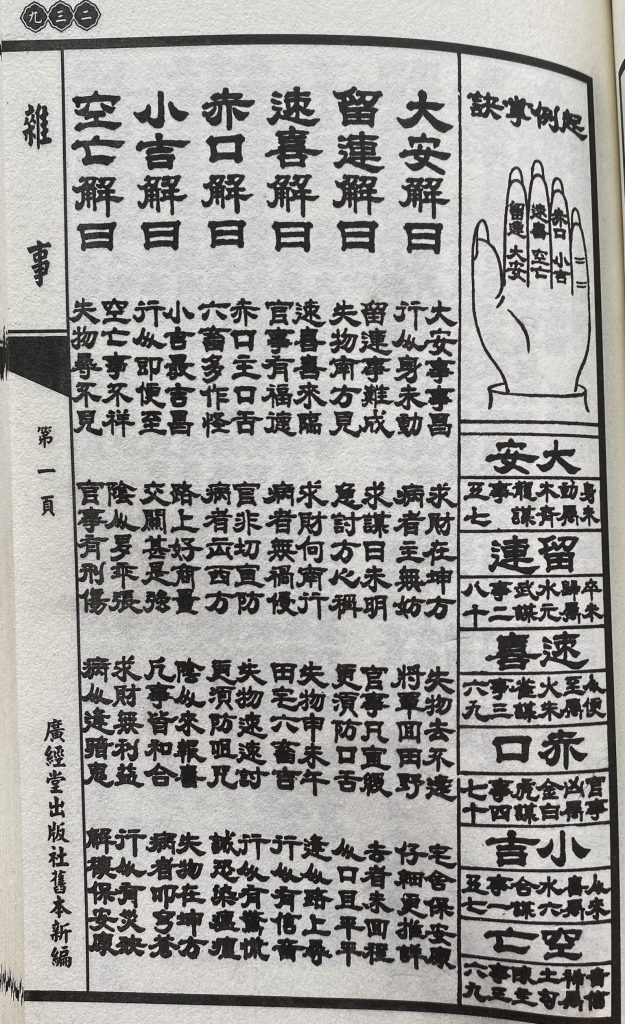 二三九
起例掌訣
赤口 小吉
速喜 空亡
留連 大安
大安
身未動屬木青龍謀事一五七
留連
卒未歸屬水元武謀事二八十
速喜
人便至屬火朱雀謀事三六九
赤口
官事凶屬金白虎謀事四七十
小吉
人來喜屬水六合謀事一五七
空亡
音信稀屬土勾陳謀事三六九
大安解曰
大安事事昌 求財在坤方 失物去不遠 宅舍保安康
行人身未動 病者主無妨 將軍回田野 仔細更推詳
留連解曰
留連事難成 求謀日未明 官事凡宜緩 去者未回程
失物南方見 急討方心稱 更須防口舌 人口且平平
速喜解曰
速喜喜來臨 求財向南行 失物申未午 逢人路上尋
官事有福德 病者無禍侵 田宅六畜吉 行人有信音
赤口解曰
赤口主口舌 官非切宜防 失物速速討 行人有驚慌
六畜多作怪 病者出西方 更須防咀咒 誠恐染瘟
小吉解曰
小吉最吉昌 路上好商量 陰人來報喜 失物在坤方
行人即便至 交關甚是強 凡事皆和合 病者叩穹蒼
空亡解曰
空亡事不祥 陰人多乖張 求財無利益 行人有災殃
失物尋不見 官事有刑傷 病人逢暗鬼 解穰保安康
雜事
第一頁
廣經堂出版社舊本新編